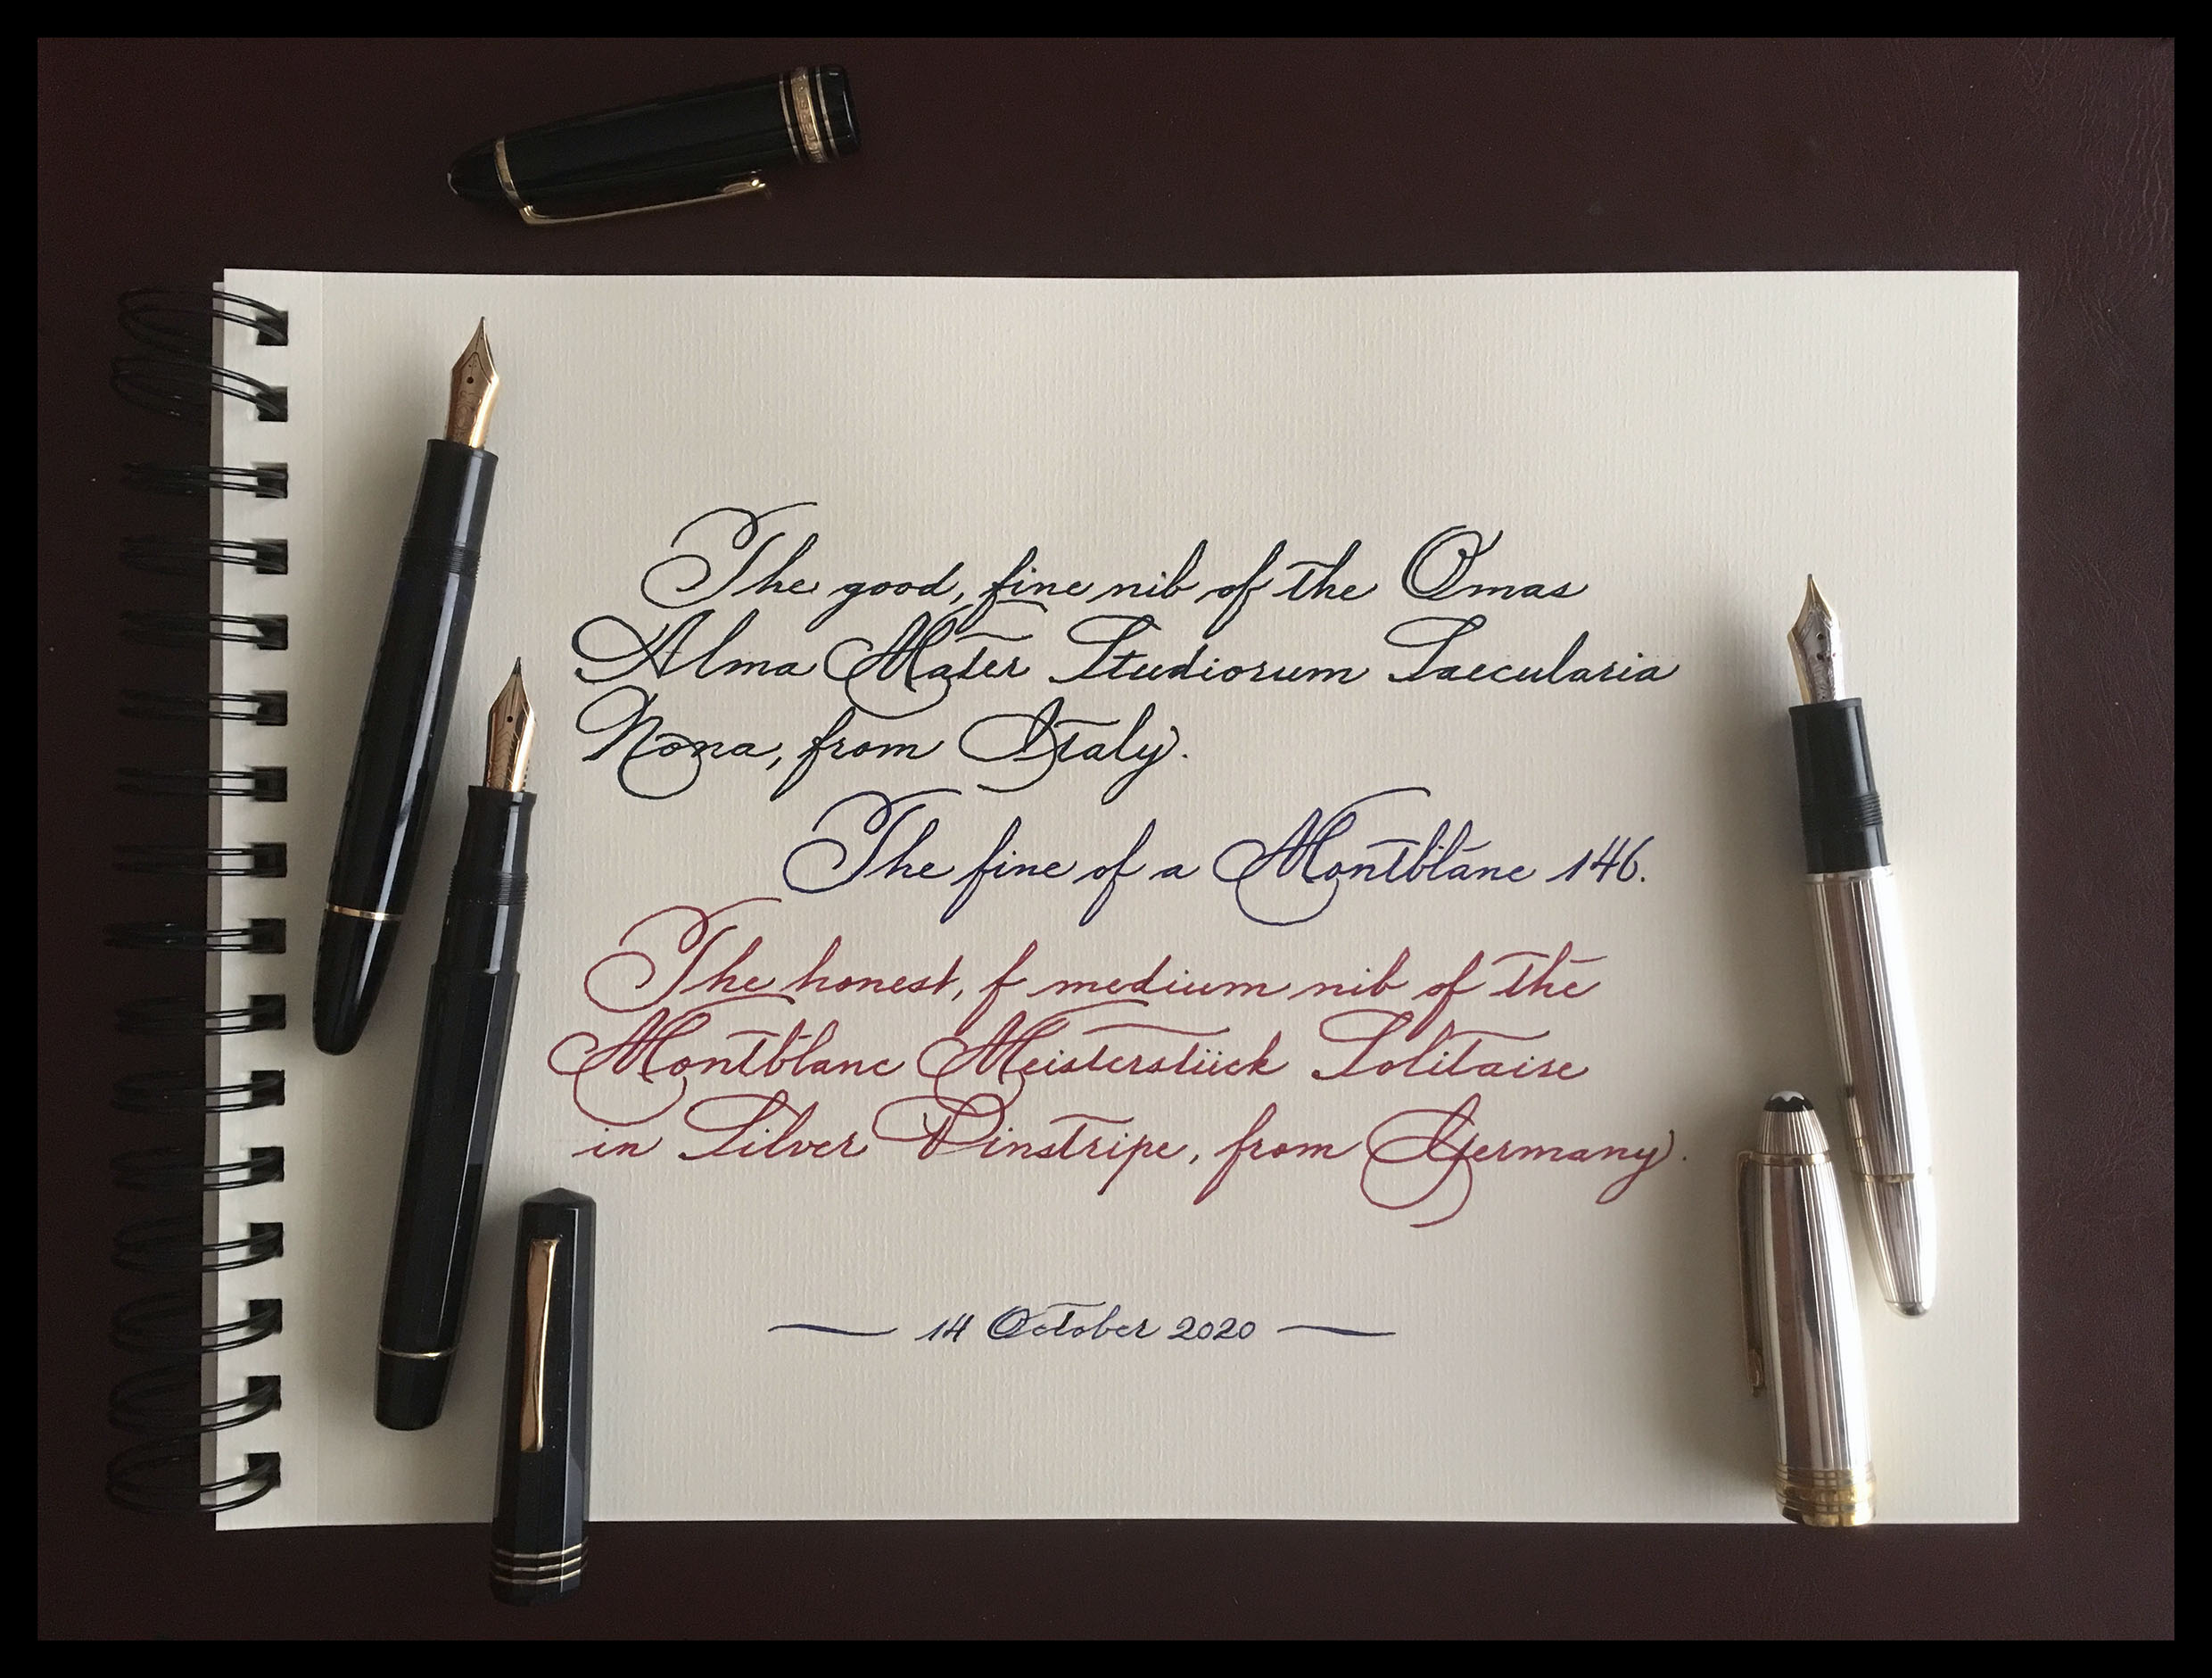 The good, fine nib of the Omas
Alma Mater Studiorum Saecularia
Nona, from Italy.
The fine of a Montblanc 146.
The honest, f medium nib of the
Montblanc Meisterstück Solitaire
in Silver Pinstripe, from Germany.
— 14 October 2020 —